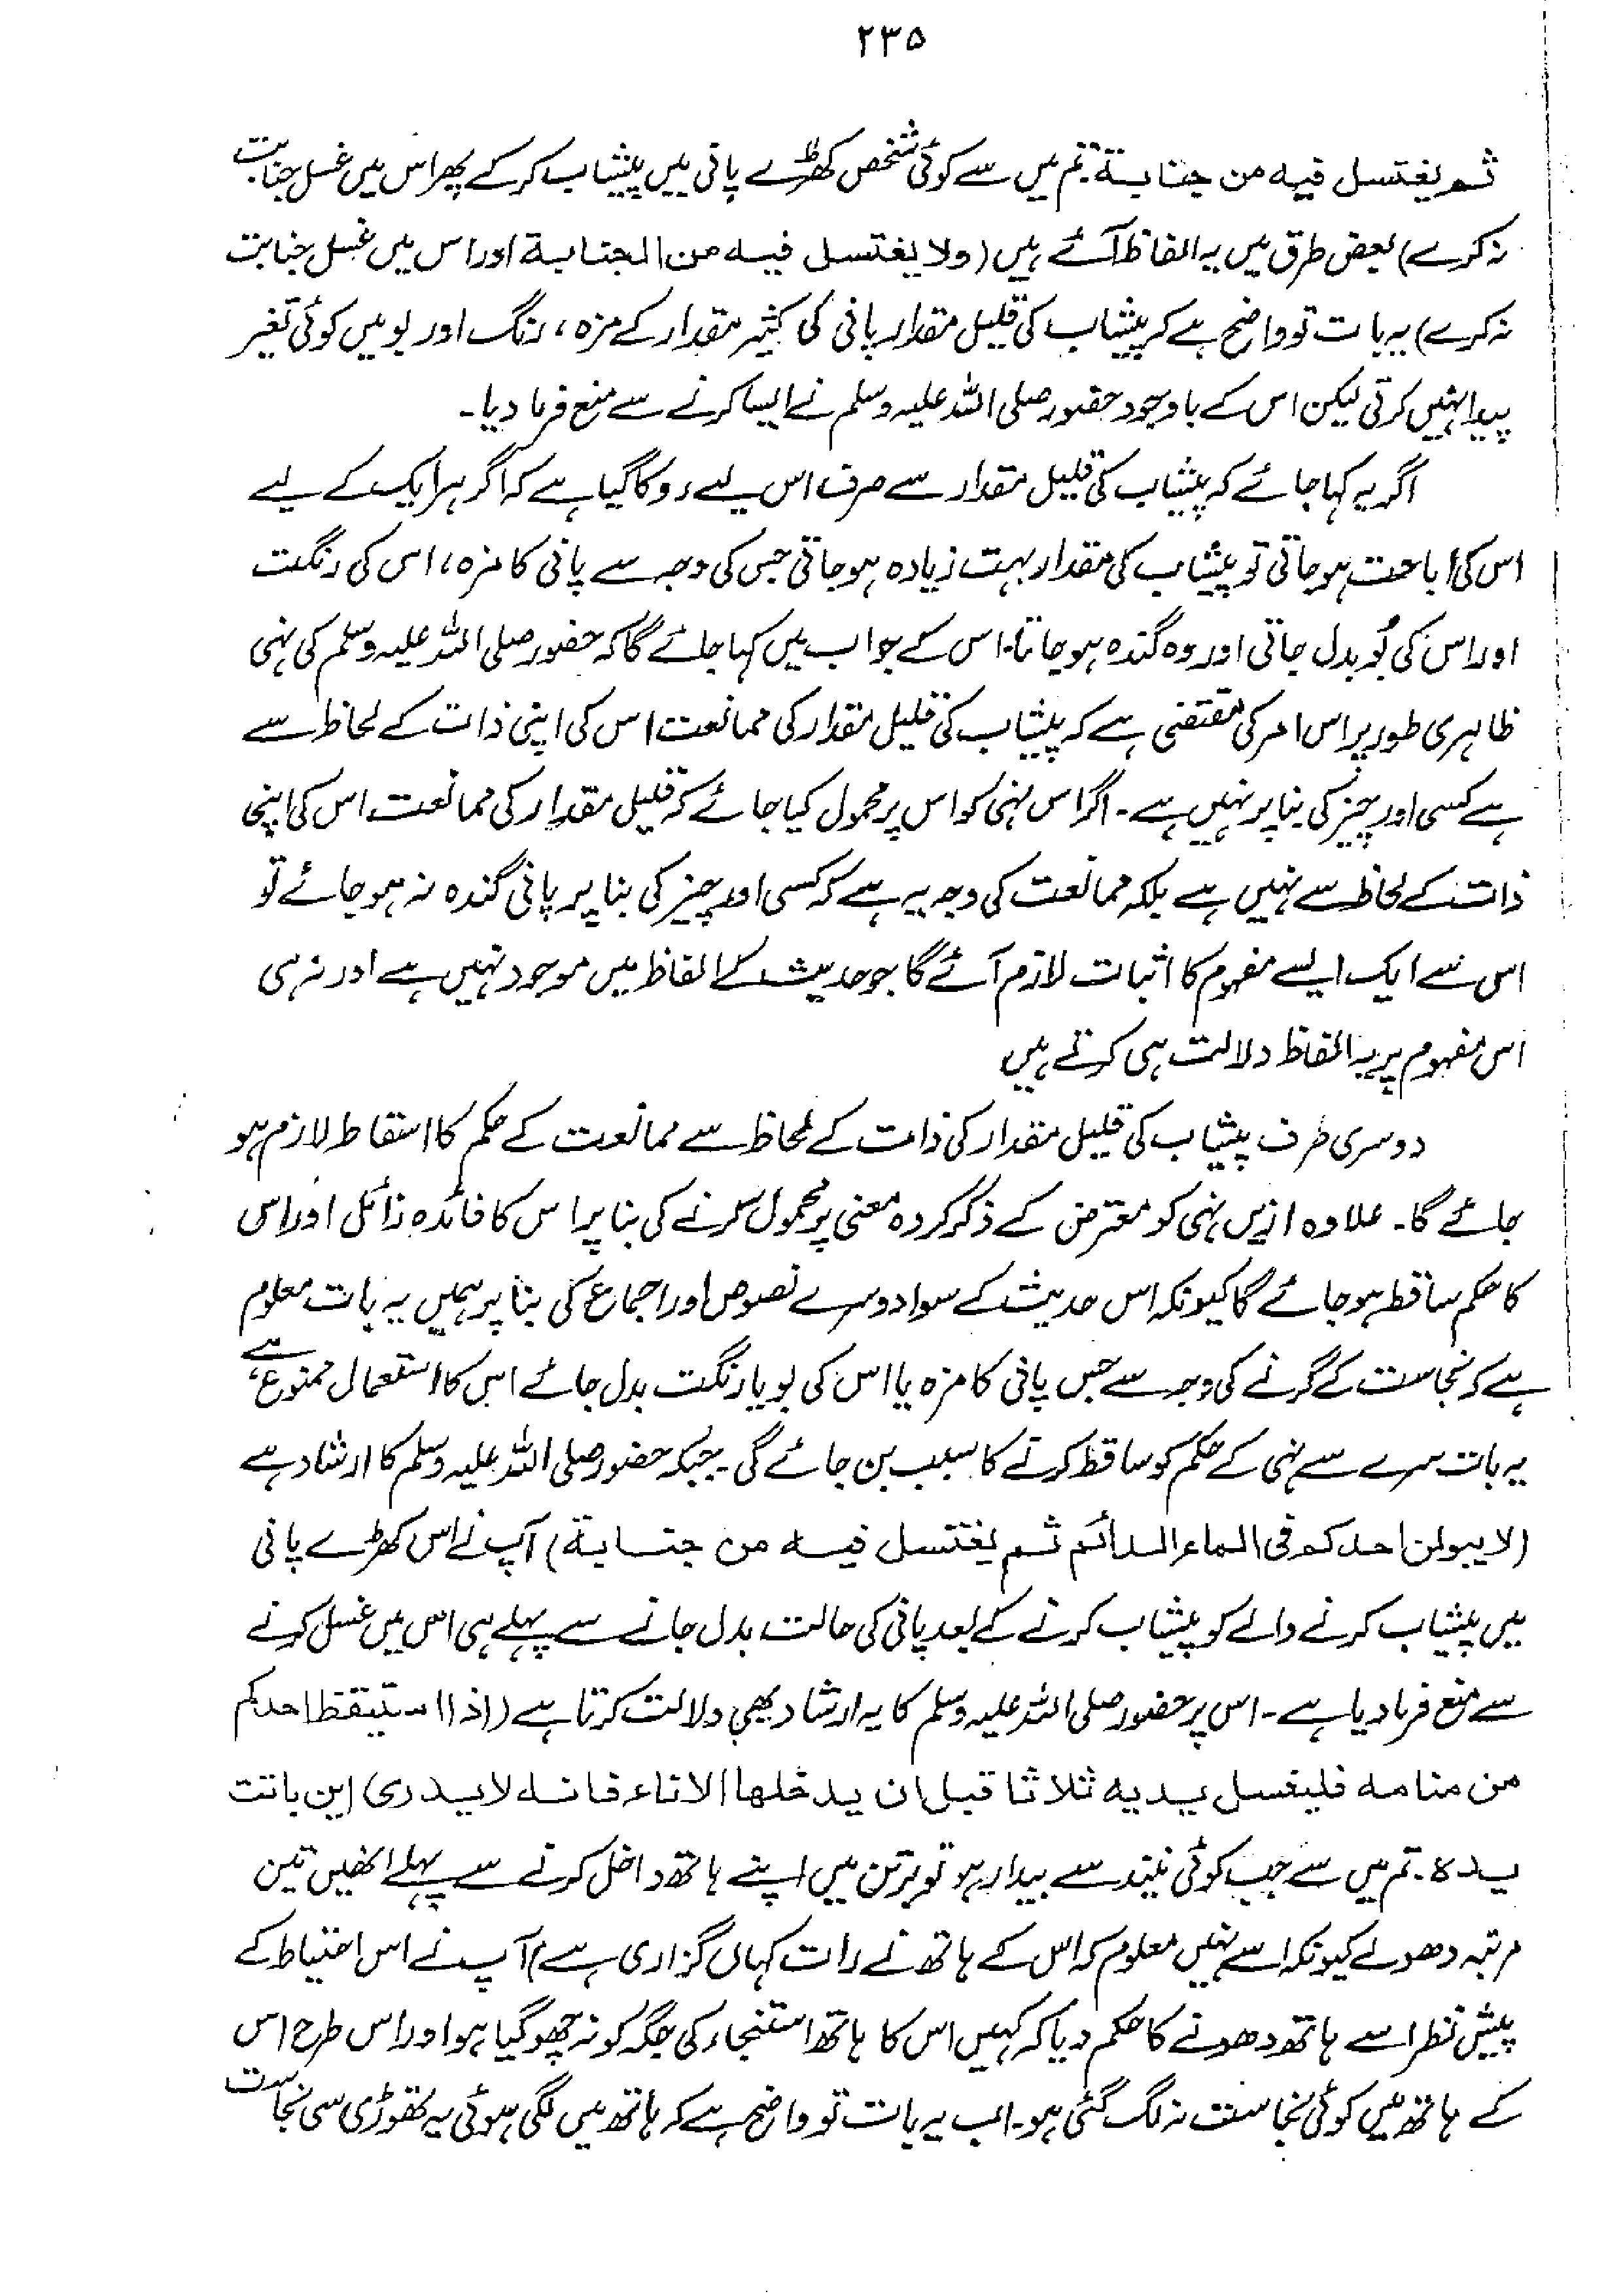 ۲۳۵
ثم یغتسل فیه من جنابة تم میں سے کوئی شخص کھڑے پانی میں پیشاب کر کے پھر اس میں غسل جنابت
نہ کرے) بعض طرق میں یہ الفاظ آئے ہیں (ولا یغتسل فیه من الجنابة اور اس میں غسل جنابت
نہ کرے) یہ بات تو واضح ہے کہ پیشاب کی قلیل مقدار پانی کی کثیر مقدار کے مزہ، رنگ اور بو میں کوئی تغیر
پیدا نہیں کرتی لیکن اس کے باوجود حضور صلی اللہ علیہ وسلم نے ایسا کرنے سے منع فرما دیا۔
اگر یہ کہا جائے کہ پیشاب کی قلیل مقدار سے صرف اس لیے روکا گیا ہے کہ اگر ہر ایک کے لیے
اس کی اباحت ہو جاتی تو پیشاب کی مقدار بہت زیادہ ہو جاتی جس کی وجہ سے پانی کا مزہ، اس کی رنگت
اور اس کی بُو بدل جاتی اور وہ گندہ ہو جاتا۔ اس کے جواب میں کہا جائے گا کہ حضور صلی اللہ علیہ وسلم کی نہی
ظاہری طور پر اس امر کی مقتضی ہے کہ پیشاب کی قلیل مقدار کی ممانعت اس کی اپنی ذات کے لحاظ سے
ہے کسی اور چیز کی بنا پر نہیں ہے۔ اگر اس نہی کو اس پر محمول کیا جائے کہ قلیل مقدار کی ممانعت اس کی اپنی
ذات کے لحاظ سے نہیں ہے بلکہ ممانعت کی وجہ یہ ہے کہ کسی اور چیز کی بنا پر پانی گندہ نہ ہو جائے تو
اس سے ایک ایسے مفہوم کا اثبات لازم آئے گا جو حدیث کے الفاظ میں موجود نہیں ہے اور نہ ہی
اس مفہوم پر یہ الفاظ دلالت ہی کرتے ہیں
دوسری طرف پیشاب کی قلیل مقدار کی ذات کے لحاظ سے ممانعت کے حکم کا اسقاط لازم ہو
جائے گا۔ علاوہ ازیں نہی کو معترض کے ذکر کردہ معنی پر محمول کرنے کی بنا پر اس کا فائدہ زائل اور اس
کا حکم ساقط ہو جائے گا کیونکہ اس حدیث کے سوا دوسرے نصوص اور اجماع کی بنا پر ہمیں یہ بات معلوم
ہے کہ نجاست کے گرنے کی وجہ سے جس پانی کا مزہ یا اس کی بو یا رنگت بدل جائے اس کا استعمال ممنوع ہے،
یہ بات سرے سے نہی کے حکم کو ساقط کرنے کا سبب بن جائے گی۔ جبکہ حضور صلی اللہ علیہ وسلم کا ارشاد ہے
(لا یبولن احدکم فی الماء الدائم ثم یغتسل فیه من جنابة) آپ نے اس کھڑے پانی
میں پیشاب کرنے والے کو پیشاب کرنے کے بعد پانی کی حالت بدل جانے سے پہلے ہی اس میں غسل کرنے
سے منع فرما دیا ہے۔ اس پر حضور صلی اللہ علیہ وسلم کا یہ ارشاد بھی دلالت کرتا ہے (اذا استیقظ احدکم
من منامه فلیغسل یدیه ثلاثا قبل ان یدخلها الاناء فانه لا یدری این باتت
یدہ۔ تم میں سے جب کوئی نیند سے بیدار ہو تو برتن میں اپنے ہاتھ داخل کرنے سے پہلے انھیں تین
مرتبہ دھولے کیونکہ اسے نہیں معلوم کہ اس کے ہاتھ نے رات کہاں گزاری ہے) آپ نے اس احتیاط کے
پیش نظر اسے ہاتھ دھونے کا حکم دیا کہ کہیں اس کا ہاتھ استنجاء کی جگہ کو نہ چھو گیا ہو اور اس طرح اس
کے ہاتھ میں کوئی نجاست نہ لگ گئی ہو۔ اب یہ بات تو واضح ہے کہ ہاتھ میں لگی ہوئی یہ تھوڑی سی نجاست